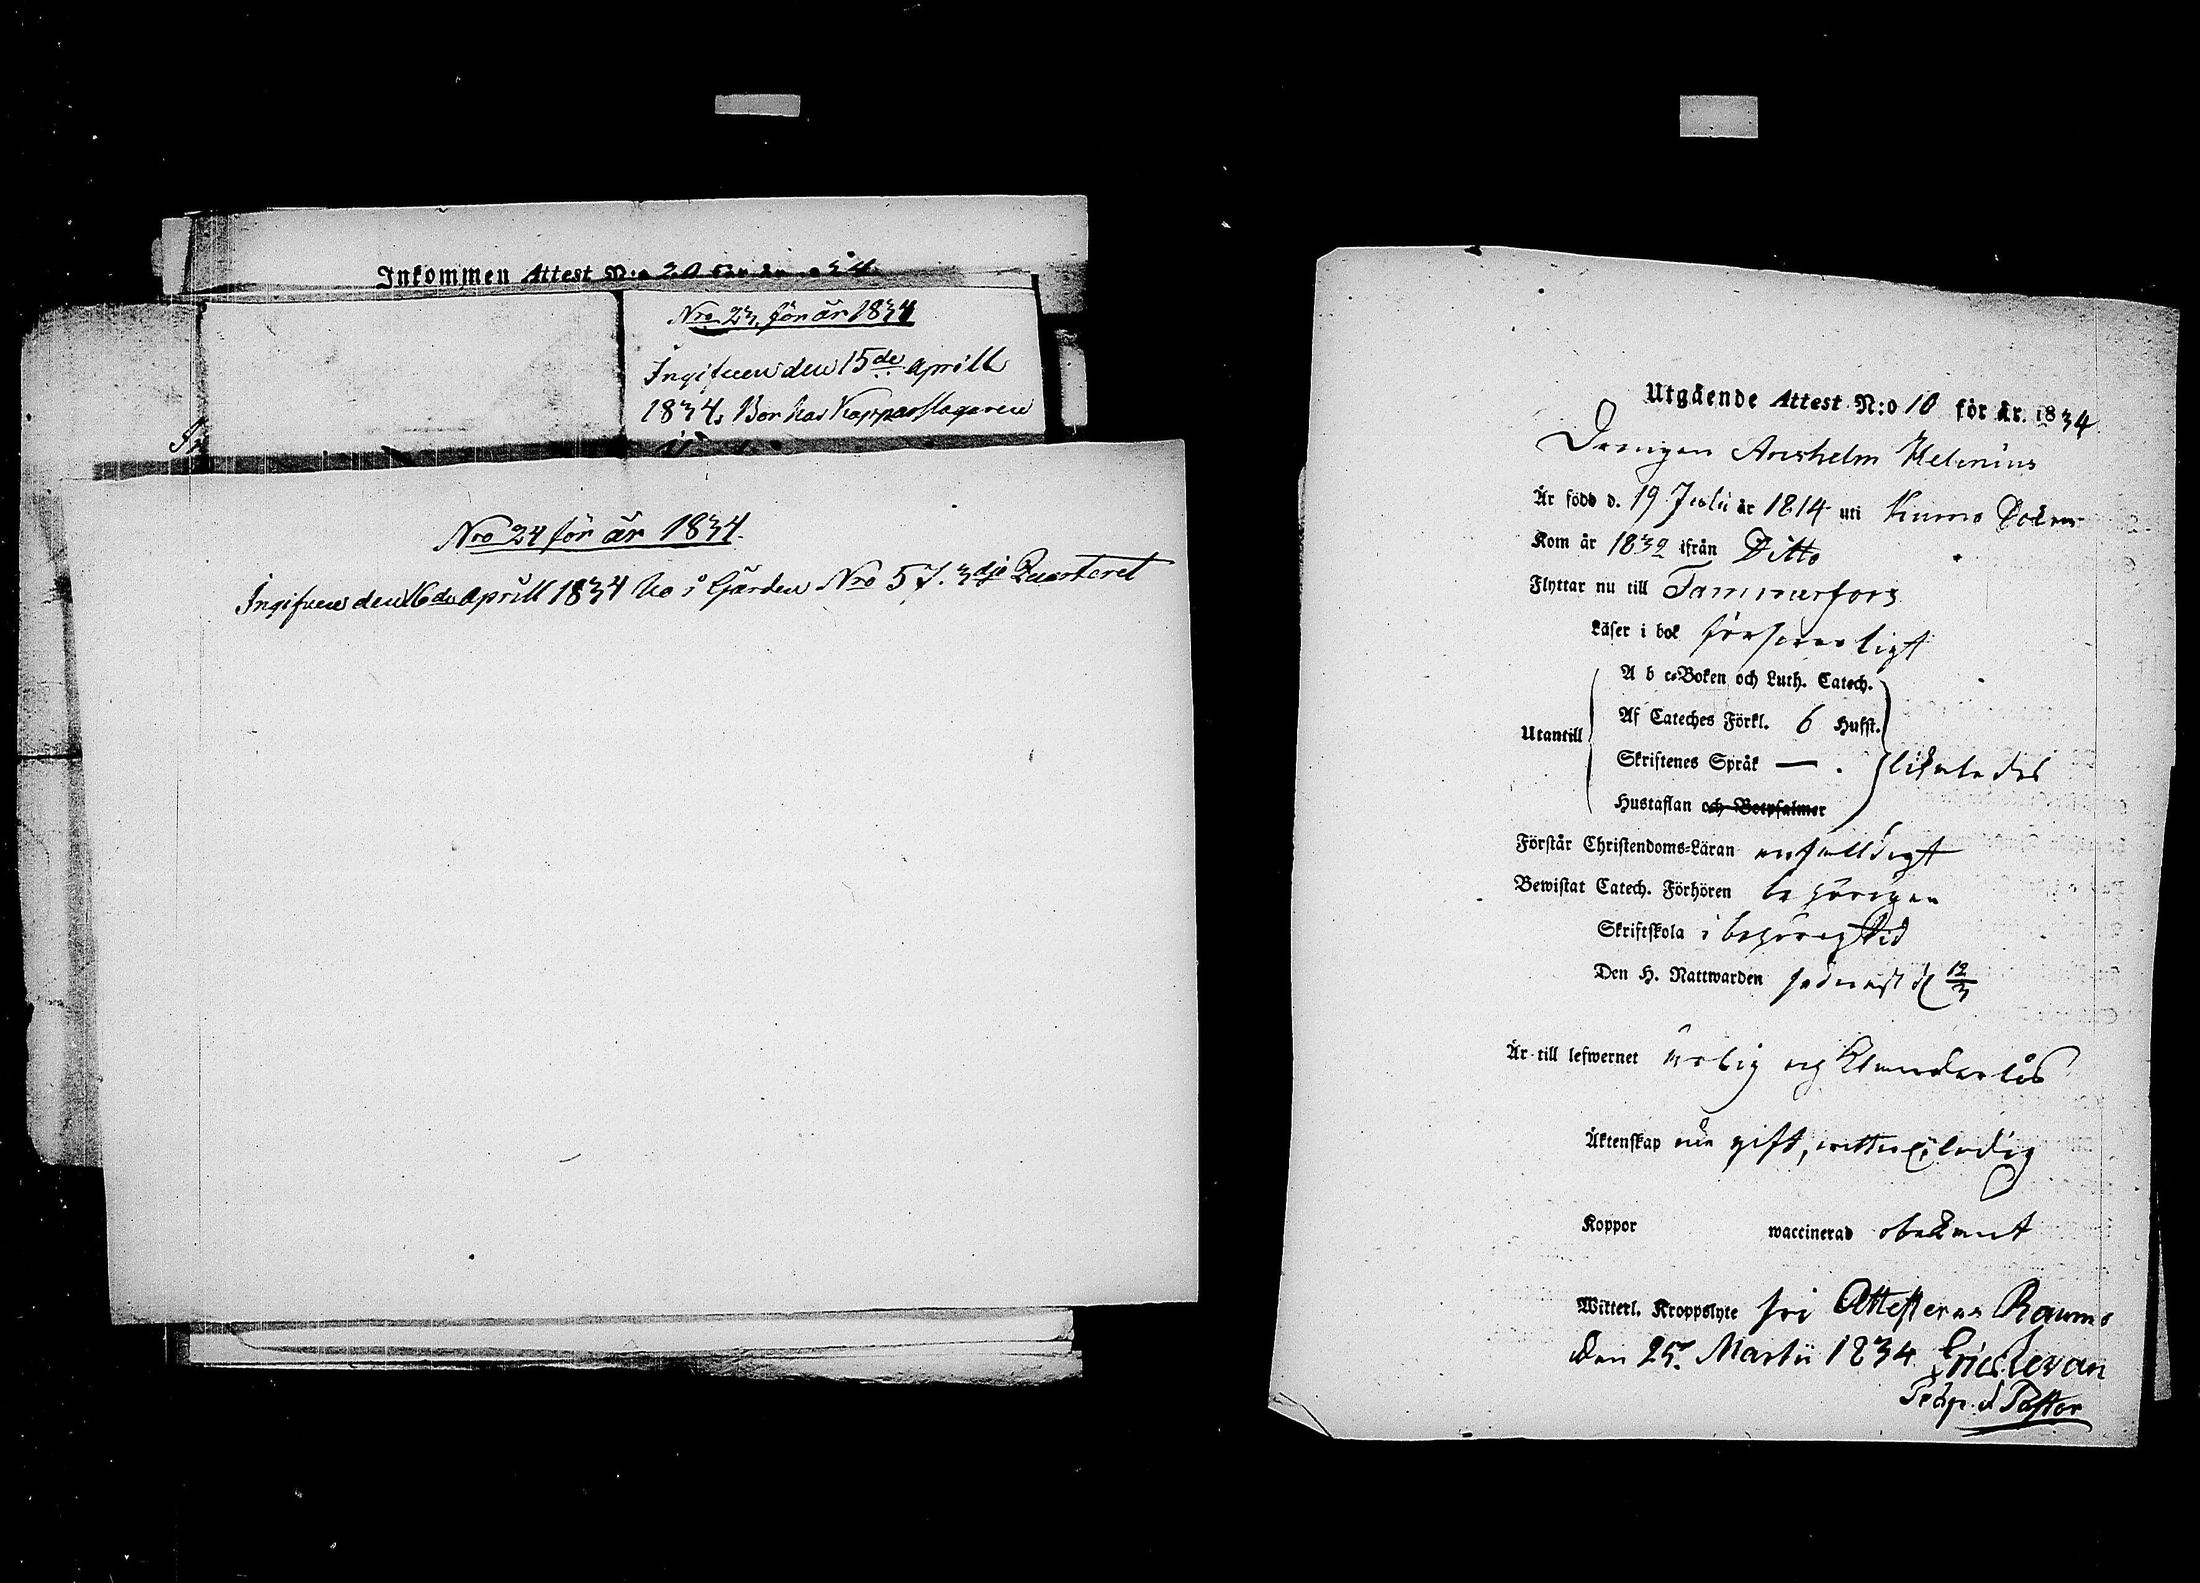 Inkommen Attest N:o 20 för år 1834
Nro 23. för år 1834
Ingifven den 15de Aprill
1834, Bor hos Kopparslagaren
Nro 24 för år 1834.
Ingifven den 16de Aprill 1834 bo i Gården Nro 57. 3dje Quarteret
Utgående Attest N:o 10 för år 1834
Drengen Anshelm Helenius
Är född d. 19 Julii år 1814 uti Kumo Sokn
Kom år 1832 ifrån Ditto
Flyttar nu till Tammerfors
Läser i bok försvarligt
A b c-Boken och Luth. Catech.
Af Cateches Förkl. 6 Hufst.
Utantill
Skriftenes Språk — . likaledes
Hustaflan och Botpsalmer
Förstår Christendoms-Läran enfalldigt
Bewistat Catech. Förhören behörigen
Skriftskola i behörig tid
Den H. Nattwarden sednast d 12/3
Är till lefwernet ärlig och klanderlös
Äktenskap ein gift, ledig
Koppor waccinerad obekant
Witterl. Kroppslyte fri Attesteras Raumo
den 25. Martii 1834. Eric Levan
Præp. & Pastor